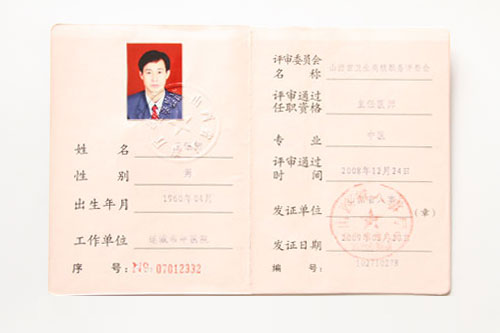 姓 名
性 别 男
出生年月 1960年04月
工作单位 运城市中医院
序 号: NO: 07012332
评审委员会
名 称 山西省卫生高级职务评委会
评审通过
任职资格 主任医师
专 业 中医
评审通过
时 间 2008年12月24日
发证单位 (章)
发证日期
编 号: 102710278